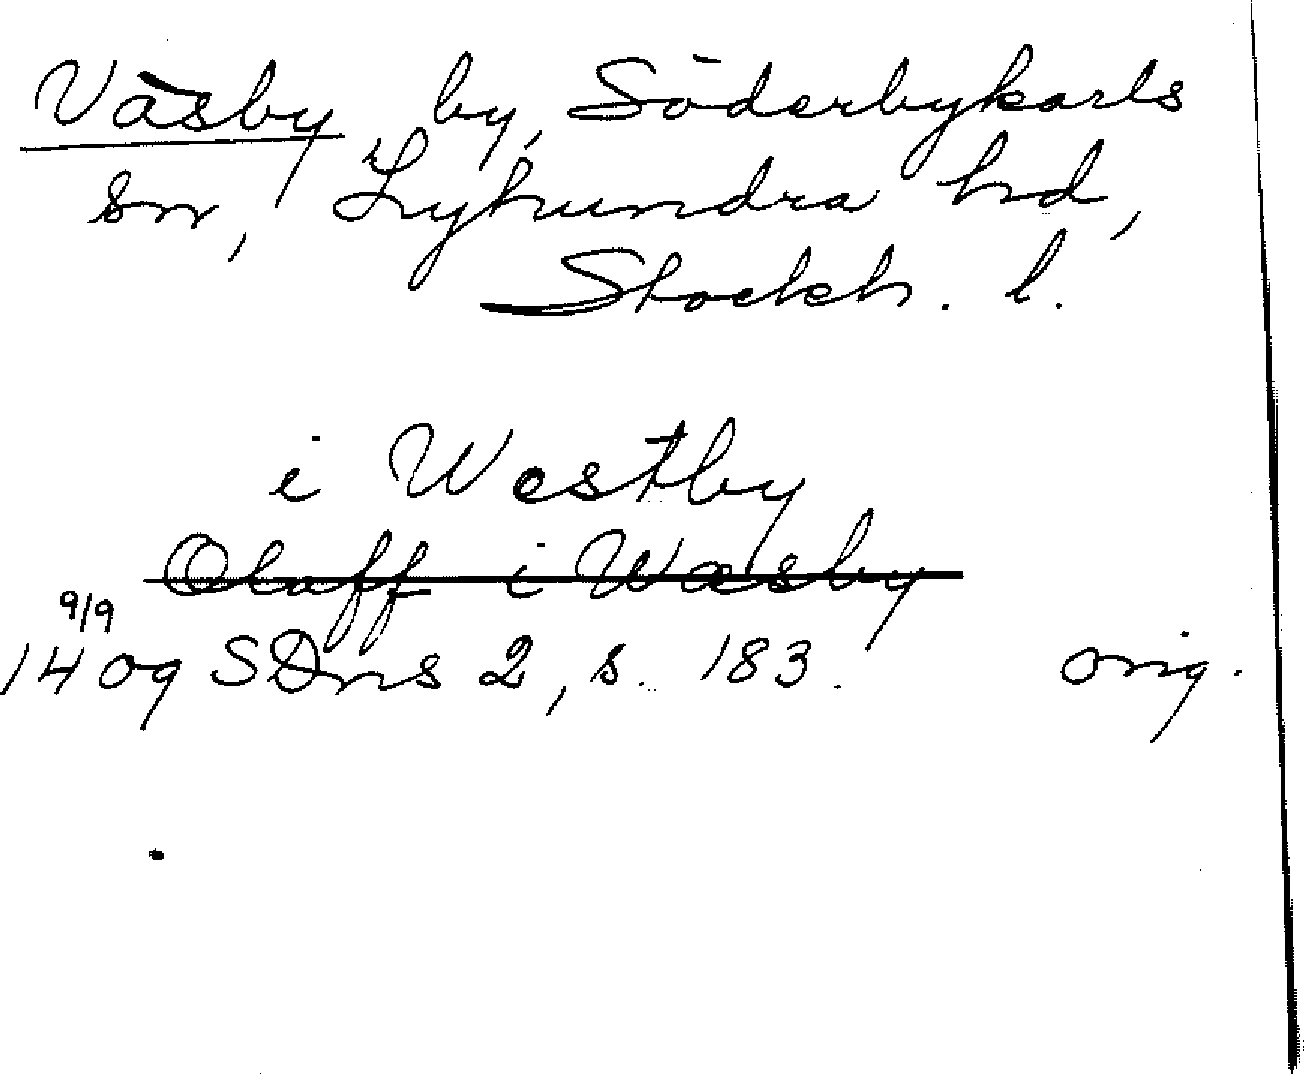 Väsby by, Söderbykarls
sn, Lyhundra hd,
Stockh. l.
i Westby
Olaff i Wæsby
9/9
1409 SDns 2, s. 183. orig.